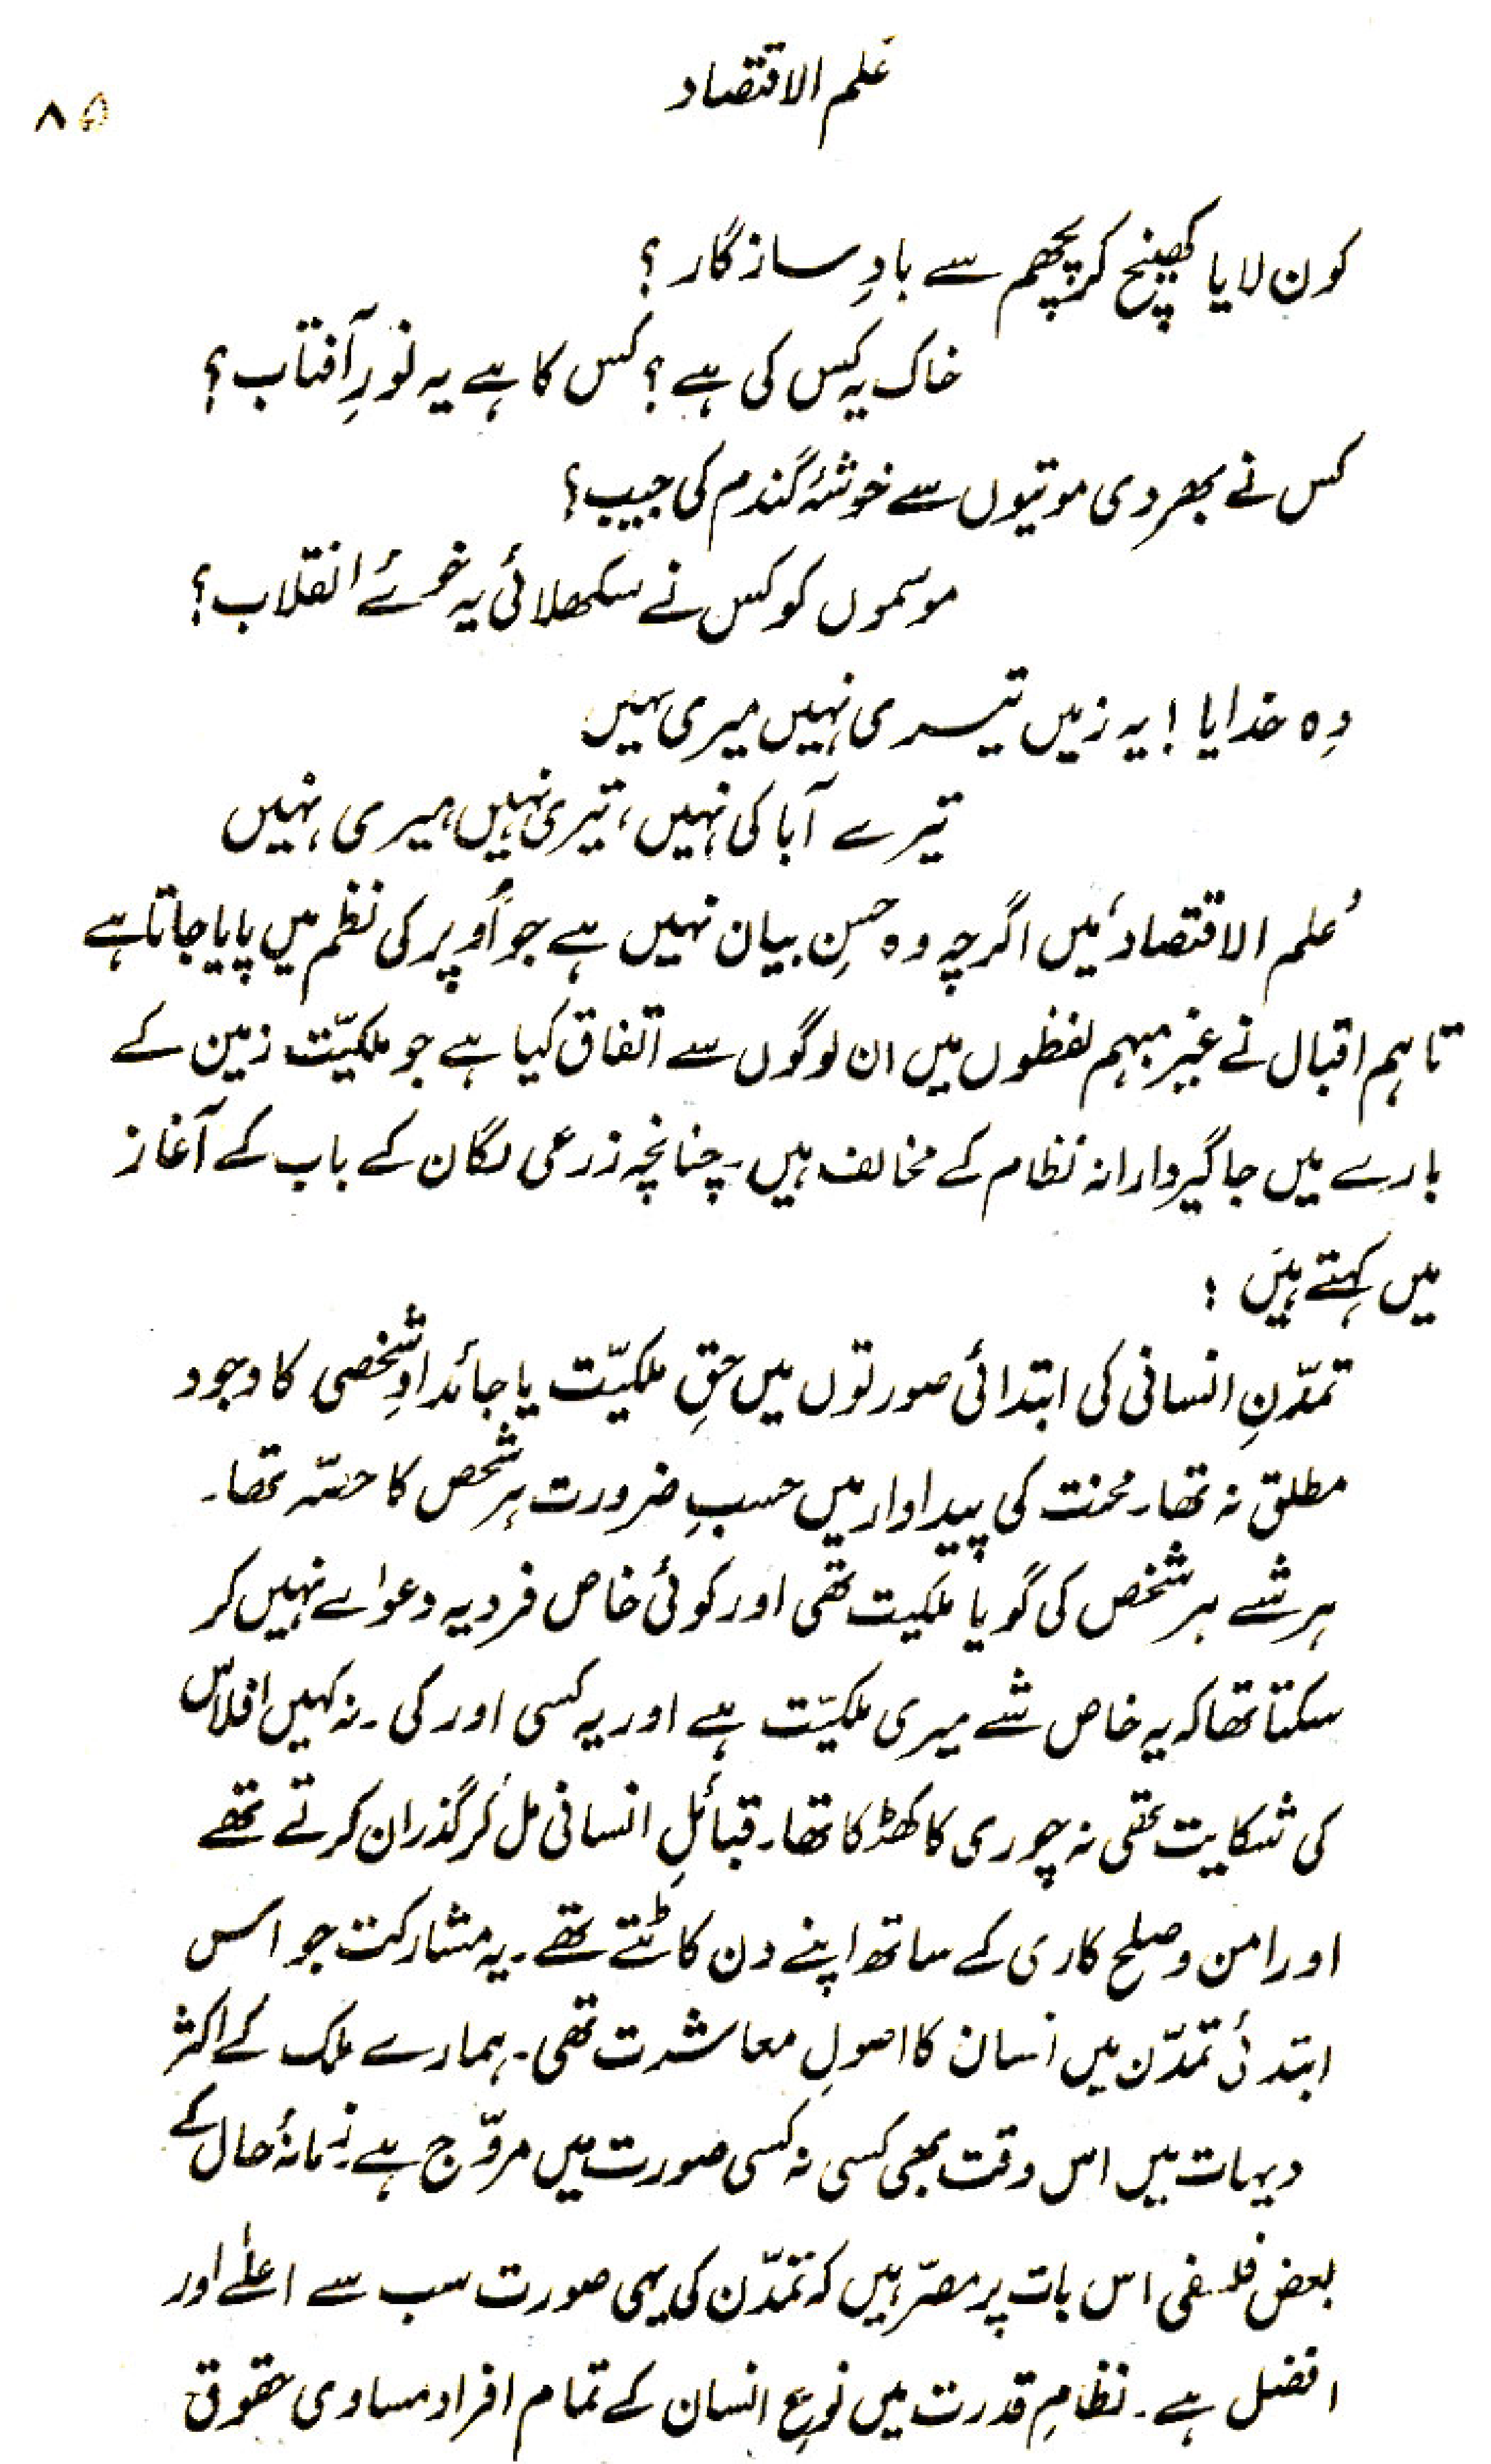 علم الاقتصاد
۸۵
کون لایا کھینچ کر پچھم سے بادِ سازگار ؟
خاک یہ کس کی ہے ؟ کس کا ہے یہ نورِ آفتاب ؟
کس نے بھر دی موتیوں سے خوشۂ گندم کی جیب ؟
موسموں کو کس نے سکھلائی یہ خوئے انقلاب ؟
دِہ خدایا ! یہ زمیں تیری نہیں میری نہیں
تیرے آبا کی نہیں، تیری نہیں، میری نہیں
’علم الاقتصاد‘ میں اگرچہ وہ حسنِ بیان نہیں ہے جو اُوپر کی نظم میں پایا جاتا ہے
تاہم اقبال نے غیر مبہم لفظوں میں ان لوگوں سے اتفاق کیا ہے جو ملکیّت زمین کے
بارے میں جاگیردارانہ نظام کے مخالف ہیں۔ چنانچہ زرعی لگان کے باب کے آغاز
میں کہتے ہیں :
تمدّنِ انسانی کی ابتدائی صورتوں میں حقِ ملکیّت یا جائدادِ شخصی کا وجود
مطلق نہ تھا۔ محنت کی پیداوار میں حسبِ ضرورت ہر شخص کا حصّہ تھا۔
ہر شے ہر شخص کی گویا ملکیت تھی اور کوئی خاص فرد یہ دعواے نہیں کر
سکتا تھا کہ یہ خاص شے میری ملکیّت ہے اور یہ کسی اور کی۔ نہ کہیں افلاس
کی شکایت تھی نہ چوری کا کھڑکا تھا۔ قبائلِ انسانی مل کر گذران کرتے تھے
اور امن و صلح کاری کے ساتھ اپنے دن کاٹتے تھے۔ یہ مشارکت جو اس
ابتدئی تمدّن میں انسان کا اصولِ معاشرت تھی۔ ہمارے ملک کے اکثر
دیہات میں اس وقت بھی کسی نہ کسی صورت میں مروّج ہے۔ زمانۂ حال کے
بعض فلسفی اس بات پر مصرّ ہیں کہ تمدّن کی یہی صورت سب سے اعلےٰ اور
افضل ہے۔ نظامِ قدرت میں نوعِ انسان کے تمام افراد مساوی حقوق